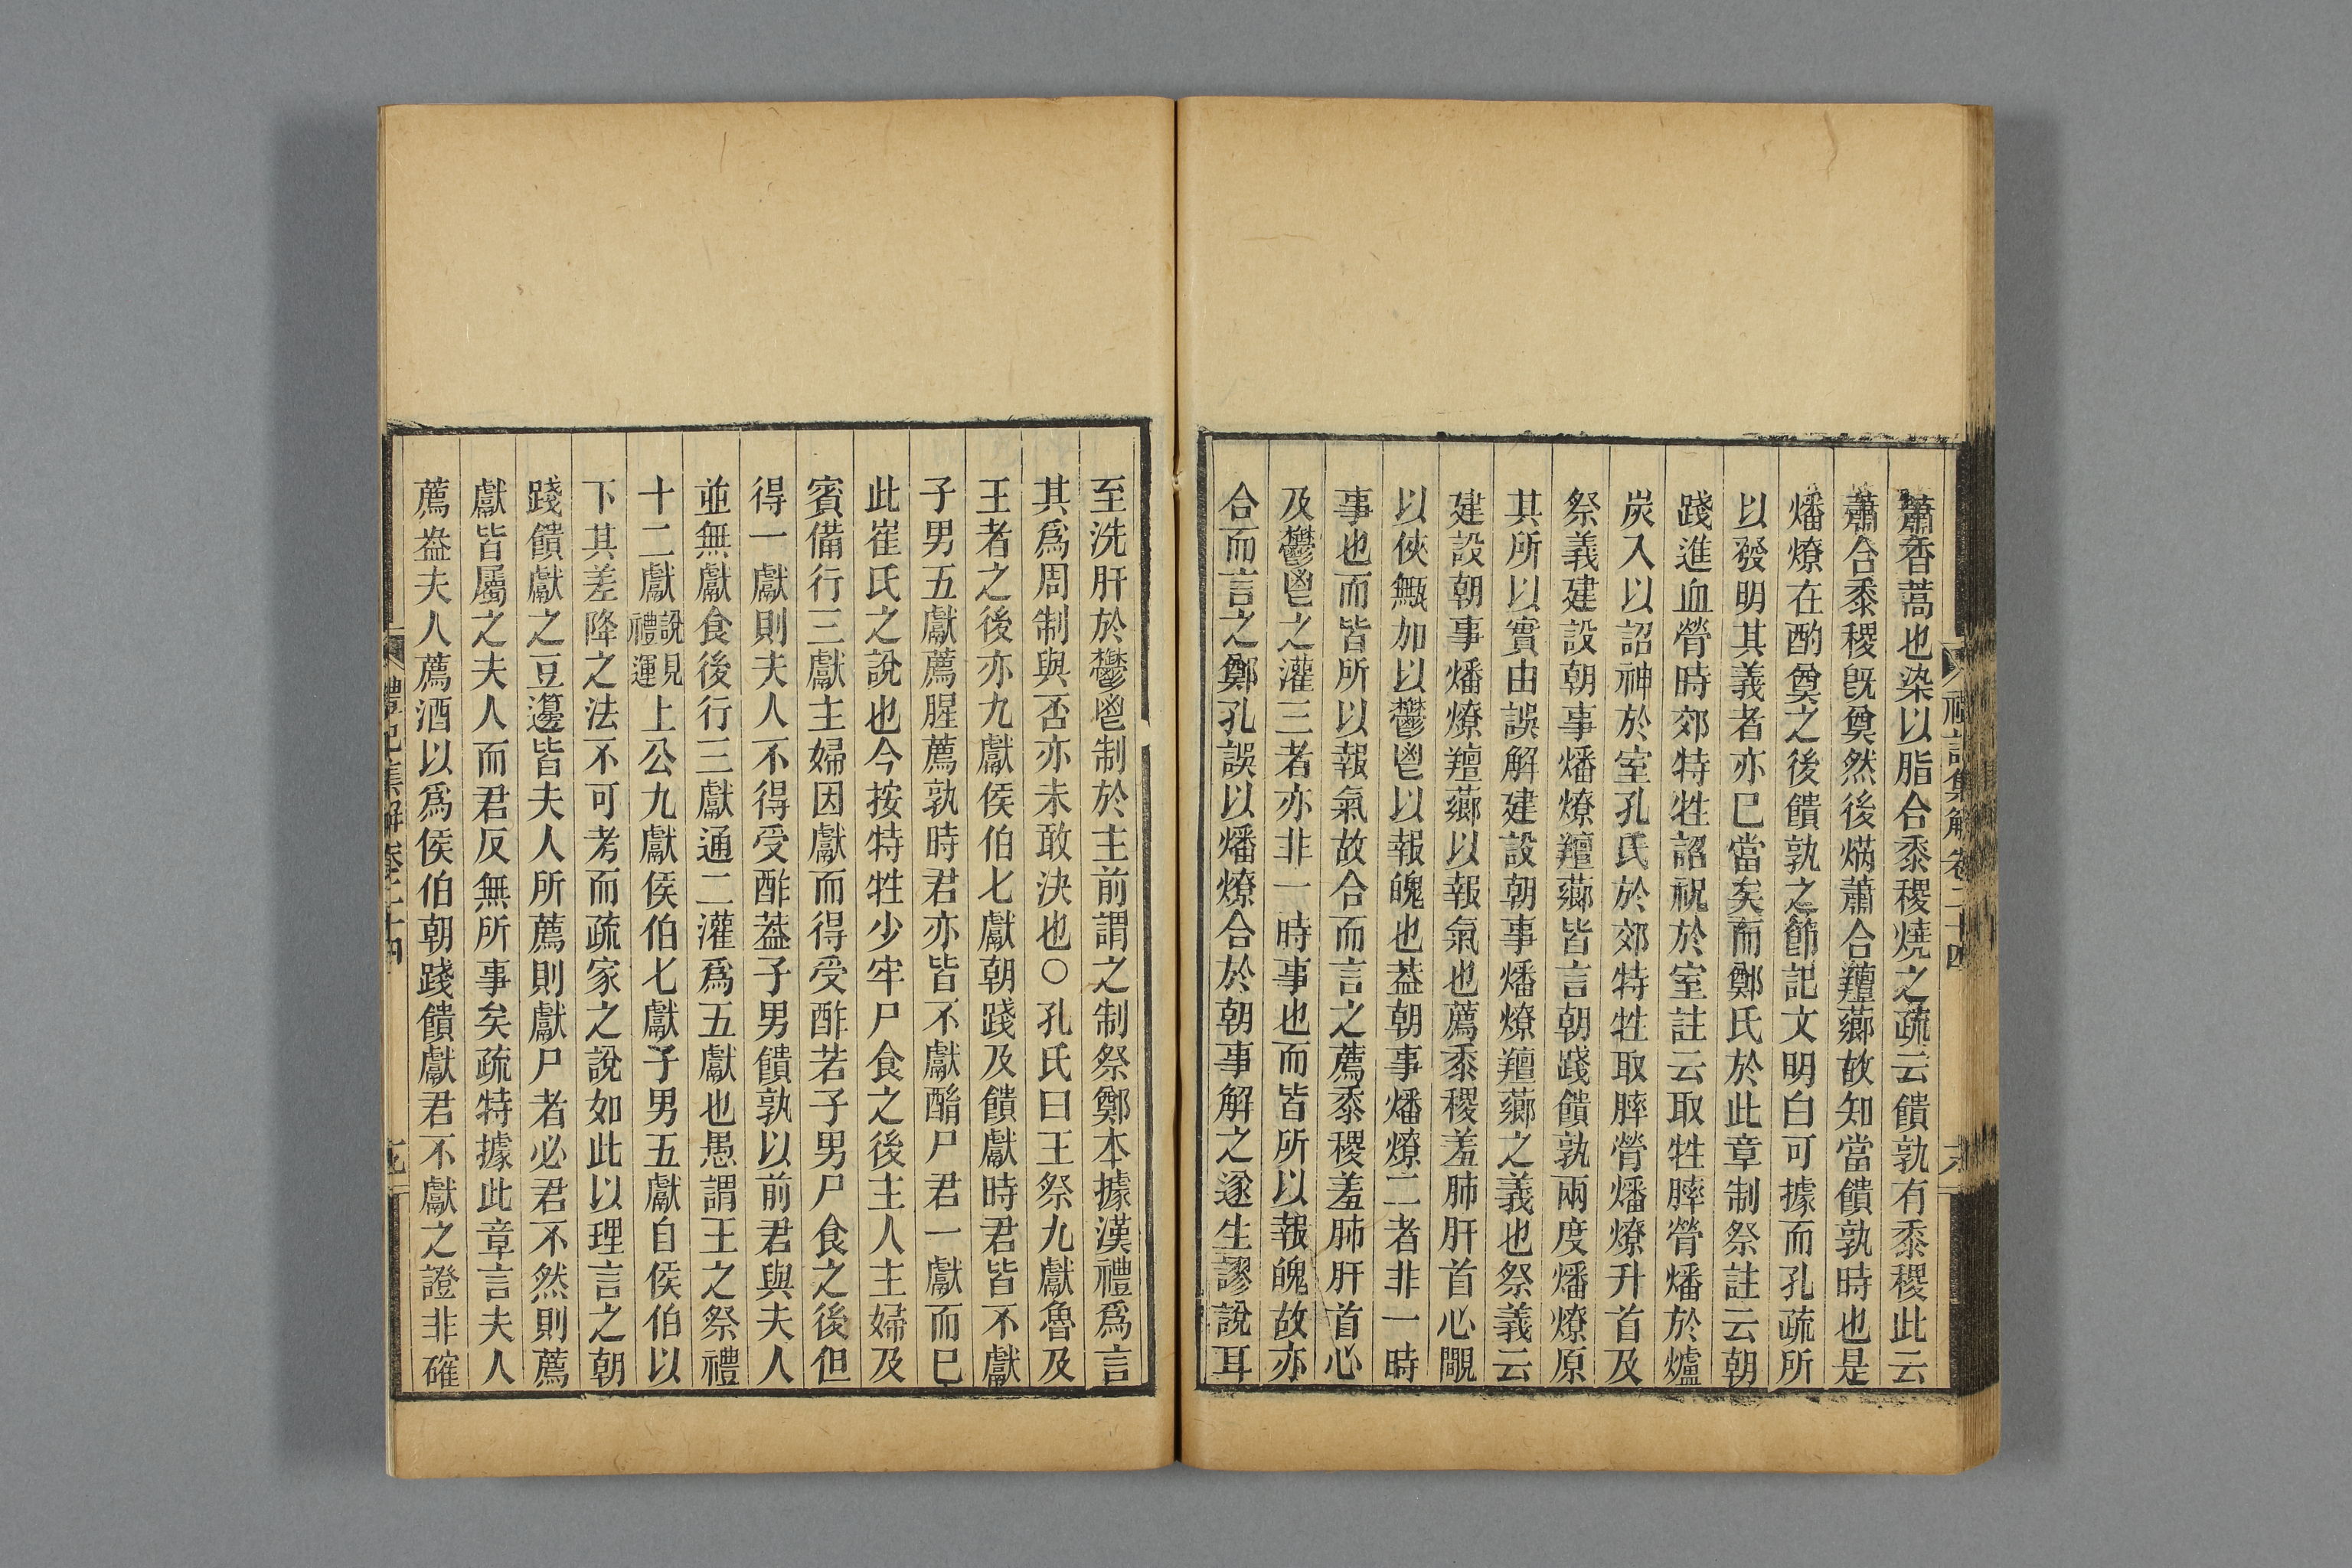 蕭香蒿也染以脂合黍稷燒之疏云饋孰有黍稷此云
蕭合黍稷旣奠然後焫蕭合羶薌故知當饋孰時也是
燔燎在酌奠之後饋孰之節記文明白可據而孔疏所
以發明其義者亦已當矣而鄭氏於此章制祭註云朝
踐進血膋時郊特牲詔祝於室註云取牲膟膋燔於爐
炭入以詔神於室孔氏於郊特牲取膟膋燔燎升首及
祭義建設朝事燔燎羶薌皆言朝踐饋孰兩度燔燎原
其所以實由誤解建設朝事燔燎羶薌之義也祭義云
建設朝事燔燎羶薌以報氣也薦黍稷羞肺肝首心覸
以俠甒加以鬱鬯以報魄也葢朝事燔燎二者非一時
事也而皆所以報氣故合而言之薦黍稷羞肺肝首心
及鬱鬯之灌三者亦非一時事也而皆所以報魄故亦
合而言之鄭孔誤以燔燎合於朝事解之遂生謬說耳
至洗肝於鬱鬯制於主前謂之制祭鄭本據漢禮爲言
其爲周制與否亦未敢決也○孔氏曰王祭九獻魯及
王者之後亦九獻侯伯七獻朝踐及饋獻時君皆不獻
子男五獻薦腥薦孰時君亦皆不獻酳尸君一獻而已
此崔氏之說也今按特牲少牢尸食之後主人主婦及
賓備行三獻主婦因獻而得受酢若子男尸食之後但
得一獻則夫人不得受酢葢子男饋孰以前君與夫人
並無獻食後行三獻通二灌爲五獻也愚謂王之祭禮
十二獻說見禮運上公九獻侯伯七獻子男五獻自侯伯以
下其差降之法不可考而疏家之說如此以理言之朝
踐饋獻之豆籩皆夫人所薦則獻尸者必君不然則薦
獻皆屬之夫人而君反無所事矣疏特據此章言夫人
薦盎夫人薦酒以爲侯伯朝踐饋獻君不獻之證非確
禮記集解 卷二十四